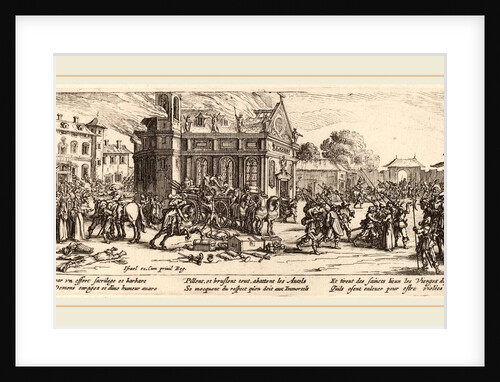 Israel ex, Cum privil Reg.
par vn effort sacrilege et barbare
Demons enragez et d'une humeur auare
Pillent, et bruslent tout, abattent les Autels
Se mocquent du respect qu'on doit aux Immortels
Et tirent des saincts lieux les Vierges
Quils osent enleuer pour estre